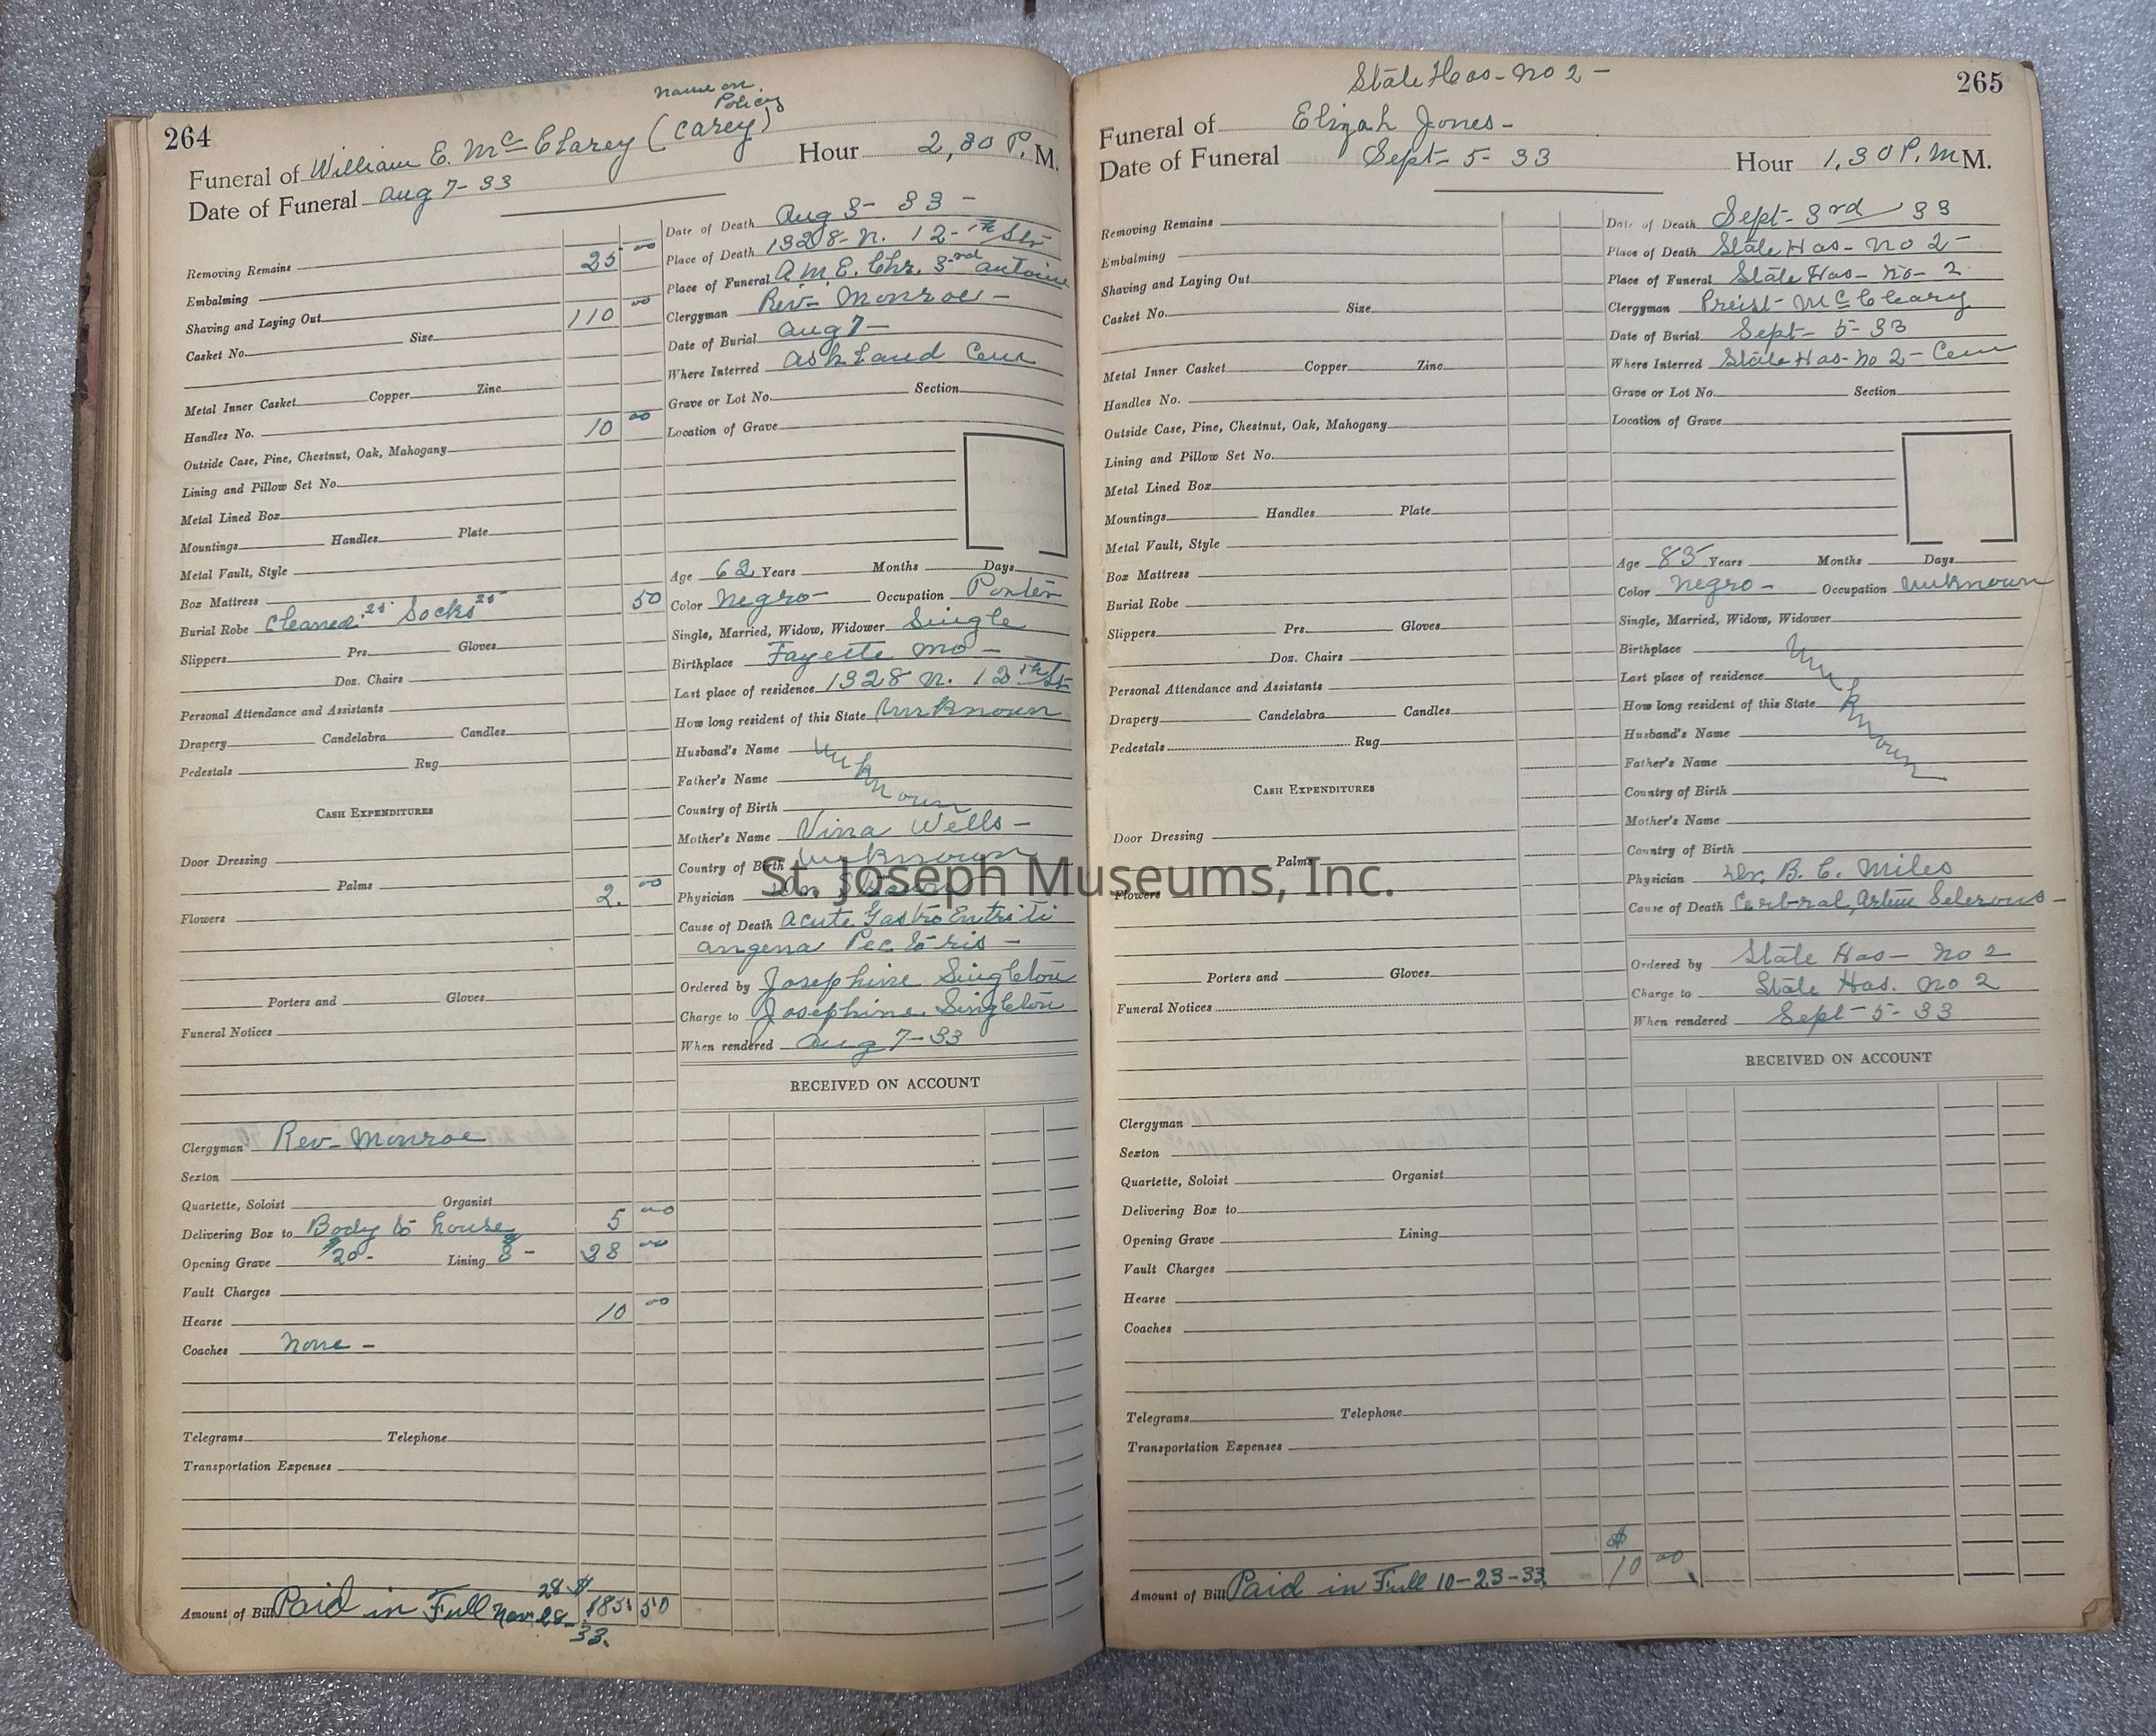 264
name on
Policy
Funeral of William E. Mc Clarey (Carey)
Date of Funeral Aug 7-33 Hour 2,30 P. M.
Removing Remains 25 00
Embalming
Shaving and Laying Out 110 00
Casket No. Size
Metal Inner Casket Copper Zinc
Handles No. 10 00
Outside Case, Pine, Chestnut, Oak, Mahogany
Lining and Pillow Set No.
Metal Lined Box
Mountings Handles Plate
Metal Vault, Style
Box Mattress
Burial Robe Cleaned 25 Socks 25 50
Slippers Prs. Gloves
Doz. Chairs
Personal Attendance and Assistants
Drapery Candelabra Candles
Pedestals Rug
CASH EXPENDITURES
Door Dressing
Palms
Flowers 2. 00
Porters and Gloves
Funeral Notices
Clergyman Rev- Monroe
Sexton
Quartette, Soloist Organist
Delivering Box to Body to house 5 00
Opening Grave $20- Lining 8- 28 00
Vault Charges
Hearse 10 00
Coaches None -
Telegrams Telephone
Transportation Expenses
Amount of Bill Paid in Full Nov 28 33. $ 185 50
Date of Death Aug 3- 33 -
Place of Death 1328- N. 12-th Str
Place of Funeral A.M.E. Chr. 3rd Antoine
Clergyman Rev- Monroe -
Date of Burial Aug 7-
Where Interred Ashland Cem
Grave or Lot No. Section
Location of Grave
Age 62 Years Months Days
Color Negro- Occupation Porter
Single, Married, Widow, Widower Single
Birthplace Fayette Mo -
Last place of residence 1328 N. 12th St
How long resident of this State Unknown
Husband's Name Unknown
Father's Name
Country of Birth
Mother's Name Vina Wells -
Country of Birth Unknown
Physician
Cause of Death Acute Gastro Entriti
angena Pec to ris -
Ordered by Josephine Singleton
Charge to Josephine Singleton
When rendered Aug 7-33
RECEIVED ON ACCOUNT
265
State Hos- No 2 -
Funeral of Elizah Jones -
Date of Funeral Sept- 5- 33 Hour 1,30 P.M M.
Removing Remains
Embalming
Shaving and Laying Out
Casket No. Size
Metal Inner Casket Copper Zinc
Handles No.
Outside Case, Pine, Chestnut, Oak, Mahogany
Lining and Pillow Set No.
Metal Lined Box
Mountings Handles Plate
Metal Vault, Style
Box Mattress
Burial Robe
Slippers Prs. Gloves
Doz. Chairs
Personal Attendance and Assistants
Drapery Candelabra Candles
Pedestals Rug
CASH EXPENDITURES
Door Dressing
Palms
Flowers
Porters and Gloves
Funeral Notices
Clergyman
Sexton
Quartette, Soloist Organist
Delivering Box to
Opening Grave Lining
Vault Charges
Hearse
Coaches
Telegrams Telephone
Transportation Expenses
Amount of Bill Paid in Full 10-23-33 $ 10 00
Date of Death Sept- 3rd 33
Place of Death State Hos- No 2-
Place of Funeral State Hos- No- 2
Clergyman Preist- Mc Cleary
Date of Burial Sept- 5-33
Where Interred State Hos- No 2- Cem
Grave or Lot No. Section
Location of Grave
Age 83 Years Months Days
Color Negro- Occupation Unknown
Single, Married, Widow, Widower
Birthplace Unknown
Last place of residence
How long resident of this State
Husband's Name
Father's Name
Country of Birth
Mother's Name
Country of Birth
Physician Dr. B. C. Miles
Cause of Death Cerbral, Arterie Selerous -
Ordered by State Hos- No 2
Charge to State Hos. No 2
When rendered Sept- 5- 33
RECEIVED ON ACCOUNT
St. Joseph Museums, Inc.